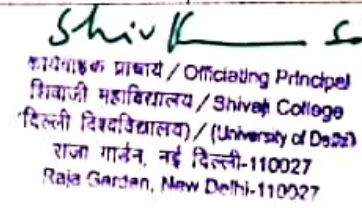 Shiv K
कार्यवाहक प्राचार्य / Officiating Principal
शिवाजी महाविद्यालय / Shivaji College
(दिल्ली विश्वविद्यालय) / (University of Delhi)
राजा गार्डन, नई दिल्ली-110027
Raja Garden, New Delhi-110027